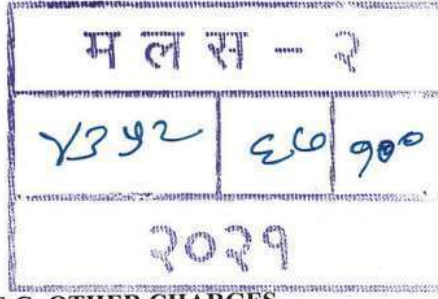 म ल स - २
४३५२ ६७ १००
२०२१
C. OTHER CHARGES